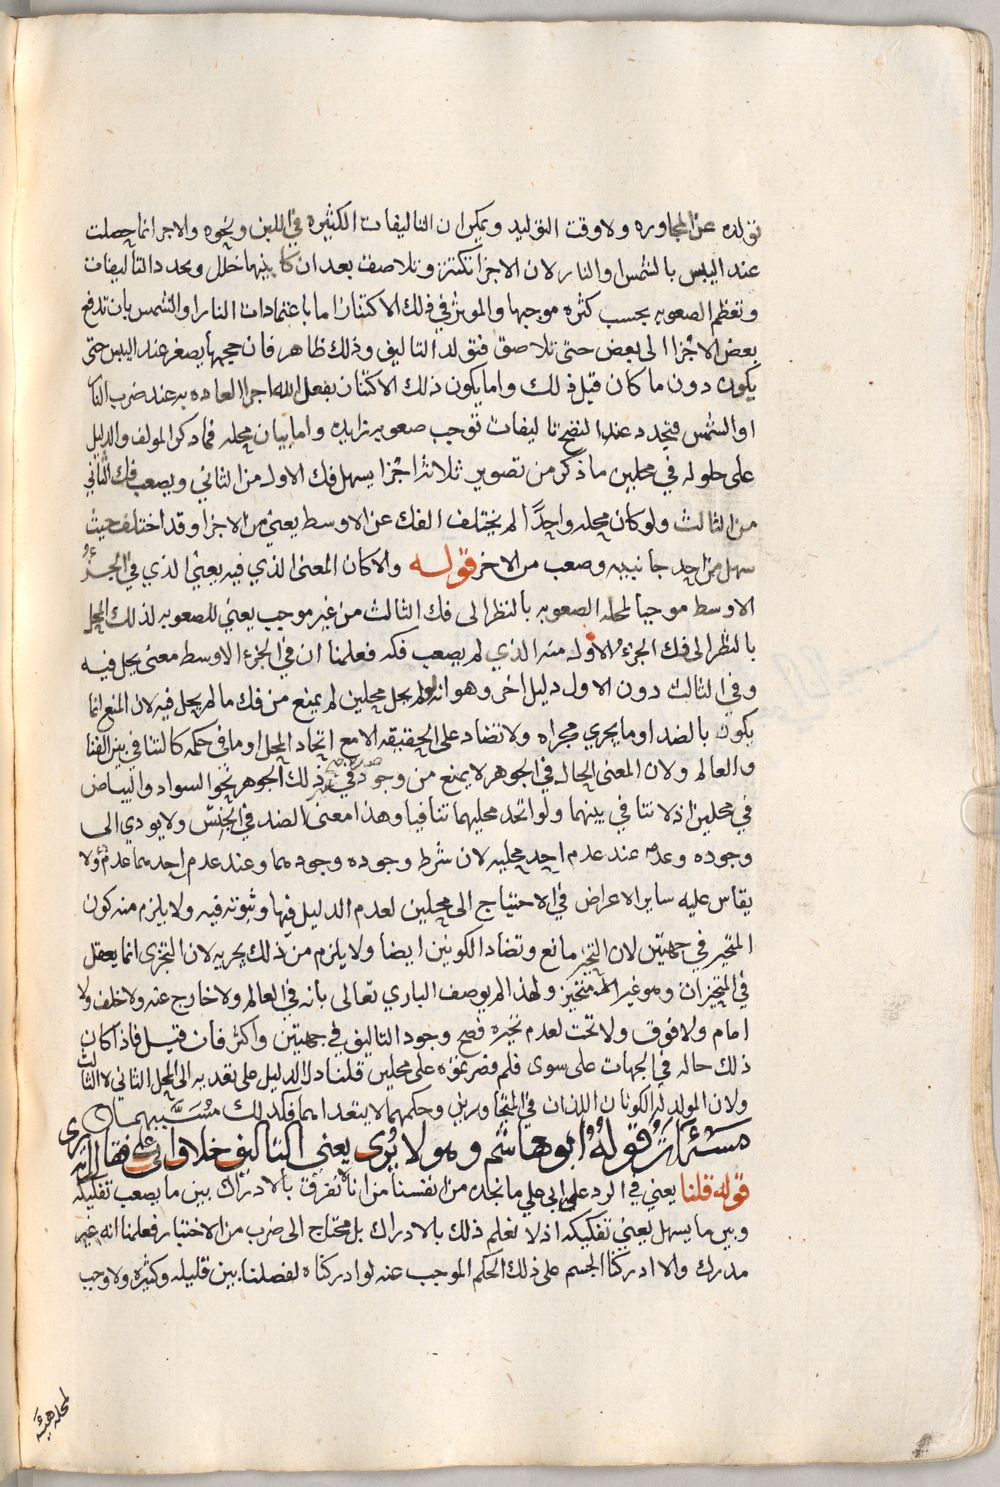 تولده عن المجاوره ولا وقت التوليد ويمكن ان التاليفات الكثيره في اللبن ونحوه والاجر انما حصلت
عند اليبس بالشمس او النار لان الاجزا تكتنز وتلاصق بعد ان كان بينها خلل ويحدد التاليفات
وتعظم الصعوبه بحسب كثره موجبها والموثر في ذلك الاكتناز اما باعتمادات النار او الشمس بان تدفع
بعض الاجزا الى بعض حتى تلاصق فتولد التاليف وذلك ظاهر فان حجمها يصغر عند اليبس حتى
يكون دون ما كان قبل ذلك واما يكون ذلك الاكتناز بفعل الله اجرا العاده به عند ضرب النار
او الشمس فيتجدد عند النضج تاليفات توجب صعوبه زايده واما بيان محله فما ذكر المولف والدليل
على حلوله في محلين ما ذكر من تصوير ثلاثه اجزا يسهل فك الاول من الثاني ويصعب فك الثاني
من الثالث ولو كان محله واحدًا لم يختلف الفك عن الاوسط يعني من الاجزا وقد اختلف حيث
سهل من احد جانبيه وصعب من الاخر قوله والا كان المعنى الذي فيه يعني الذي في الجزؤ
الاوسط موجبا لمحله الصعوبه بالنظر الى فك الثالث من غير موجب يعني للصعوبه لذلك المحل
بالنظر الى فك الجزؤ الاول منه الذي لم يصعب فكه فعلمنا ان في الجزء الاوسط معنى يحل فيه
وفي الثالث دون الاول دليل اخر وهو انه لو لم يحل محلين لم يمنع من فك ما لم يحل فيه لان المنع انما
يكون بالضد او ما يجري مجراه ولا تضاد على الحقيقه الا مع اتحاد المحل او ما في حكمه كالتنافي بين الفنا
والعالم ولان المعنى الحال في الجوهر لا يمنع من وجود ضده في غير ذلك الجوهر نحو السواد والبياض
في محلين اذ لا تنافي بينهما ولو اتحد محليهما تنافيا وهذا معنى الضد في الجنس ولا يودي الى
وجوده وعدمه عند عدم احد محليه لان شرط وجوده وجودهما وعند عدم احدهما عدم ولا
يقاس عليه ساير الاعراض في الاحتياج الى محلين لعدم الدليل فيها وثبوته فيه ولا يلزم منه كون
المتحيز في جهتين لان التحيز مانع وتضاد الكونين ايضا ولا يلزم من ذلك تجزيه لان التجزي انما يعقل
في المتحيزات وهو غير متحيز ولهذا لم يوصف الباري تعالى بانه في العالم ولا خارج عنه ولا خلف ولا
امام ولا فوق ولا تحت لعدم تحيزه فصح وجود التاليف في جهتين واكثر فان قيل فاذا كان
ذلك حاله في الجهات على سوى فلم قصرتموه على محلين قلنا دل الدليل على تعديه الى المحل الثاني لا الثالث
ولان المولد له الكونان اللذان في المتجاورين وحكمهما لا يتعداهما فكذلك مسببهما
مسئله قوله ابو هاشم وهو لا يُرى يعني التاليف خلاف ابي علي فقال انه يرى
قوله قلنا يعني في الرد على ابي علي ما نجده من انفسنا من انا لا نفرق بالادراك بين ما يصعب تفكيكه
وبين ما يسهل يعني تفكيكه اذ لا نعلم ذلك بالادراك بل محتاج الى ضرب من الاختبار فعلمنا انه غير
مدرك والا ادركنا الجسم على ذلك الحكم الموجب عنه لو ادركناه لفصلنا بين قليله وكثيره ولاوجب
لمحله هيئه